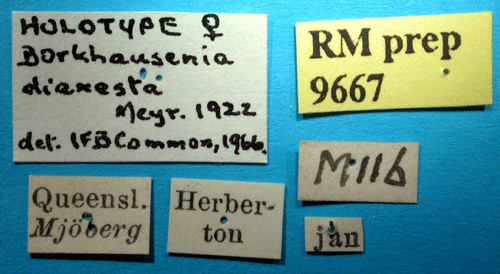 HOLOTYPE ♀
Borkhausenia
diaxesta
Meyr. 1922
det. IFB Common, 1966.
RM prep
9667
M11b
Queensl.
Mjöberg
Herber-
ton
jan